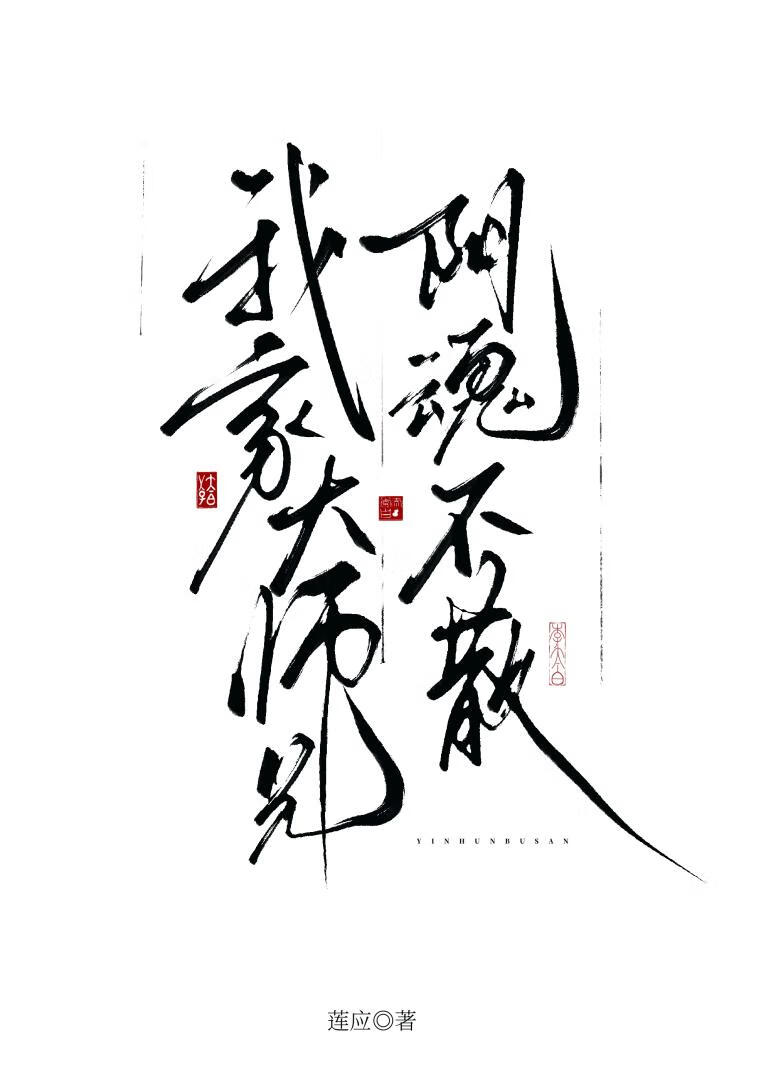 我家大师兄
阴魂不散
YINHUNBUSAN
莲应◎著